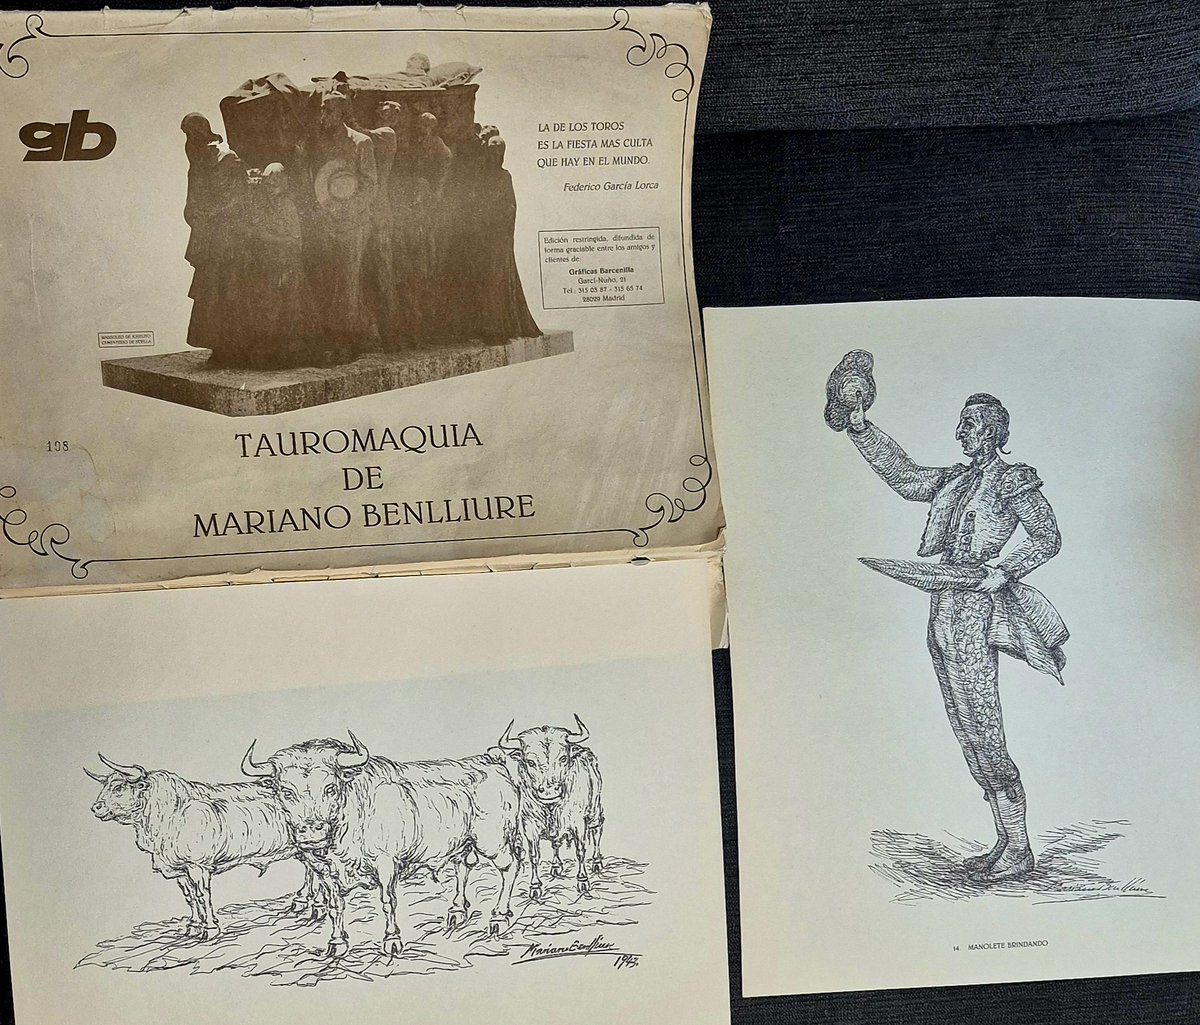 gb
LA DE LOS TOROS
ES LA FIESTA MAS CULTA
QUE HAY EN EL MUNDO.
Federico García Lorca
Edición restringida, difundida de
forma graciable entre los amigos y
clientes de:
Gráficas Barcenilla
Garci-Nuño, 21
Tel.: 315 03 87 - 315 65 74
28029 Madrid
MAUSOLEO DE JOSELITO
CEMENTERIO DE SEVILLA
108
TAUROMAQUIA
DE
MARIANO BENLLIURE
Mariano Benlliure
1943.
Mariano Benlliure
14. MANOLETE BRINDANDO